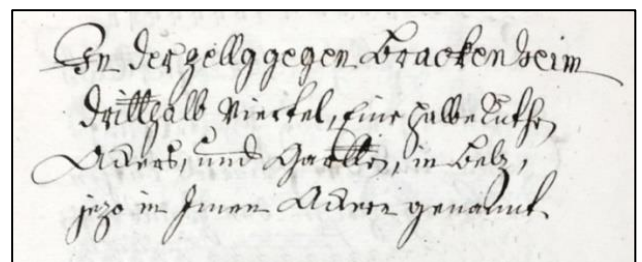 In der zellg gegen Brackenheim
dritthalb Viertel, Eine halbe Ruthen
Ackers, und Gartten, in Belz,
jezo in Jmen Ackern genannt.